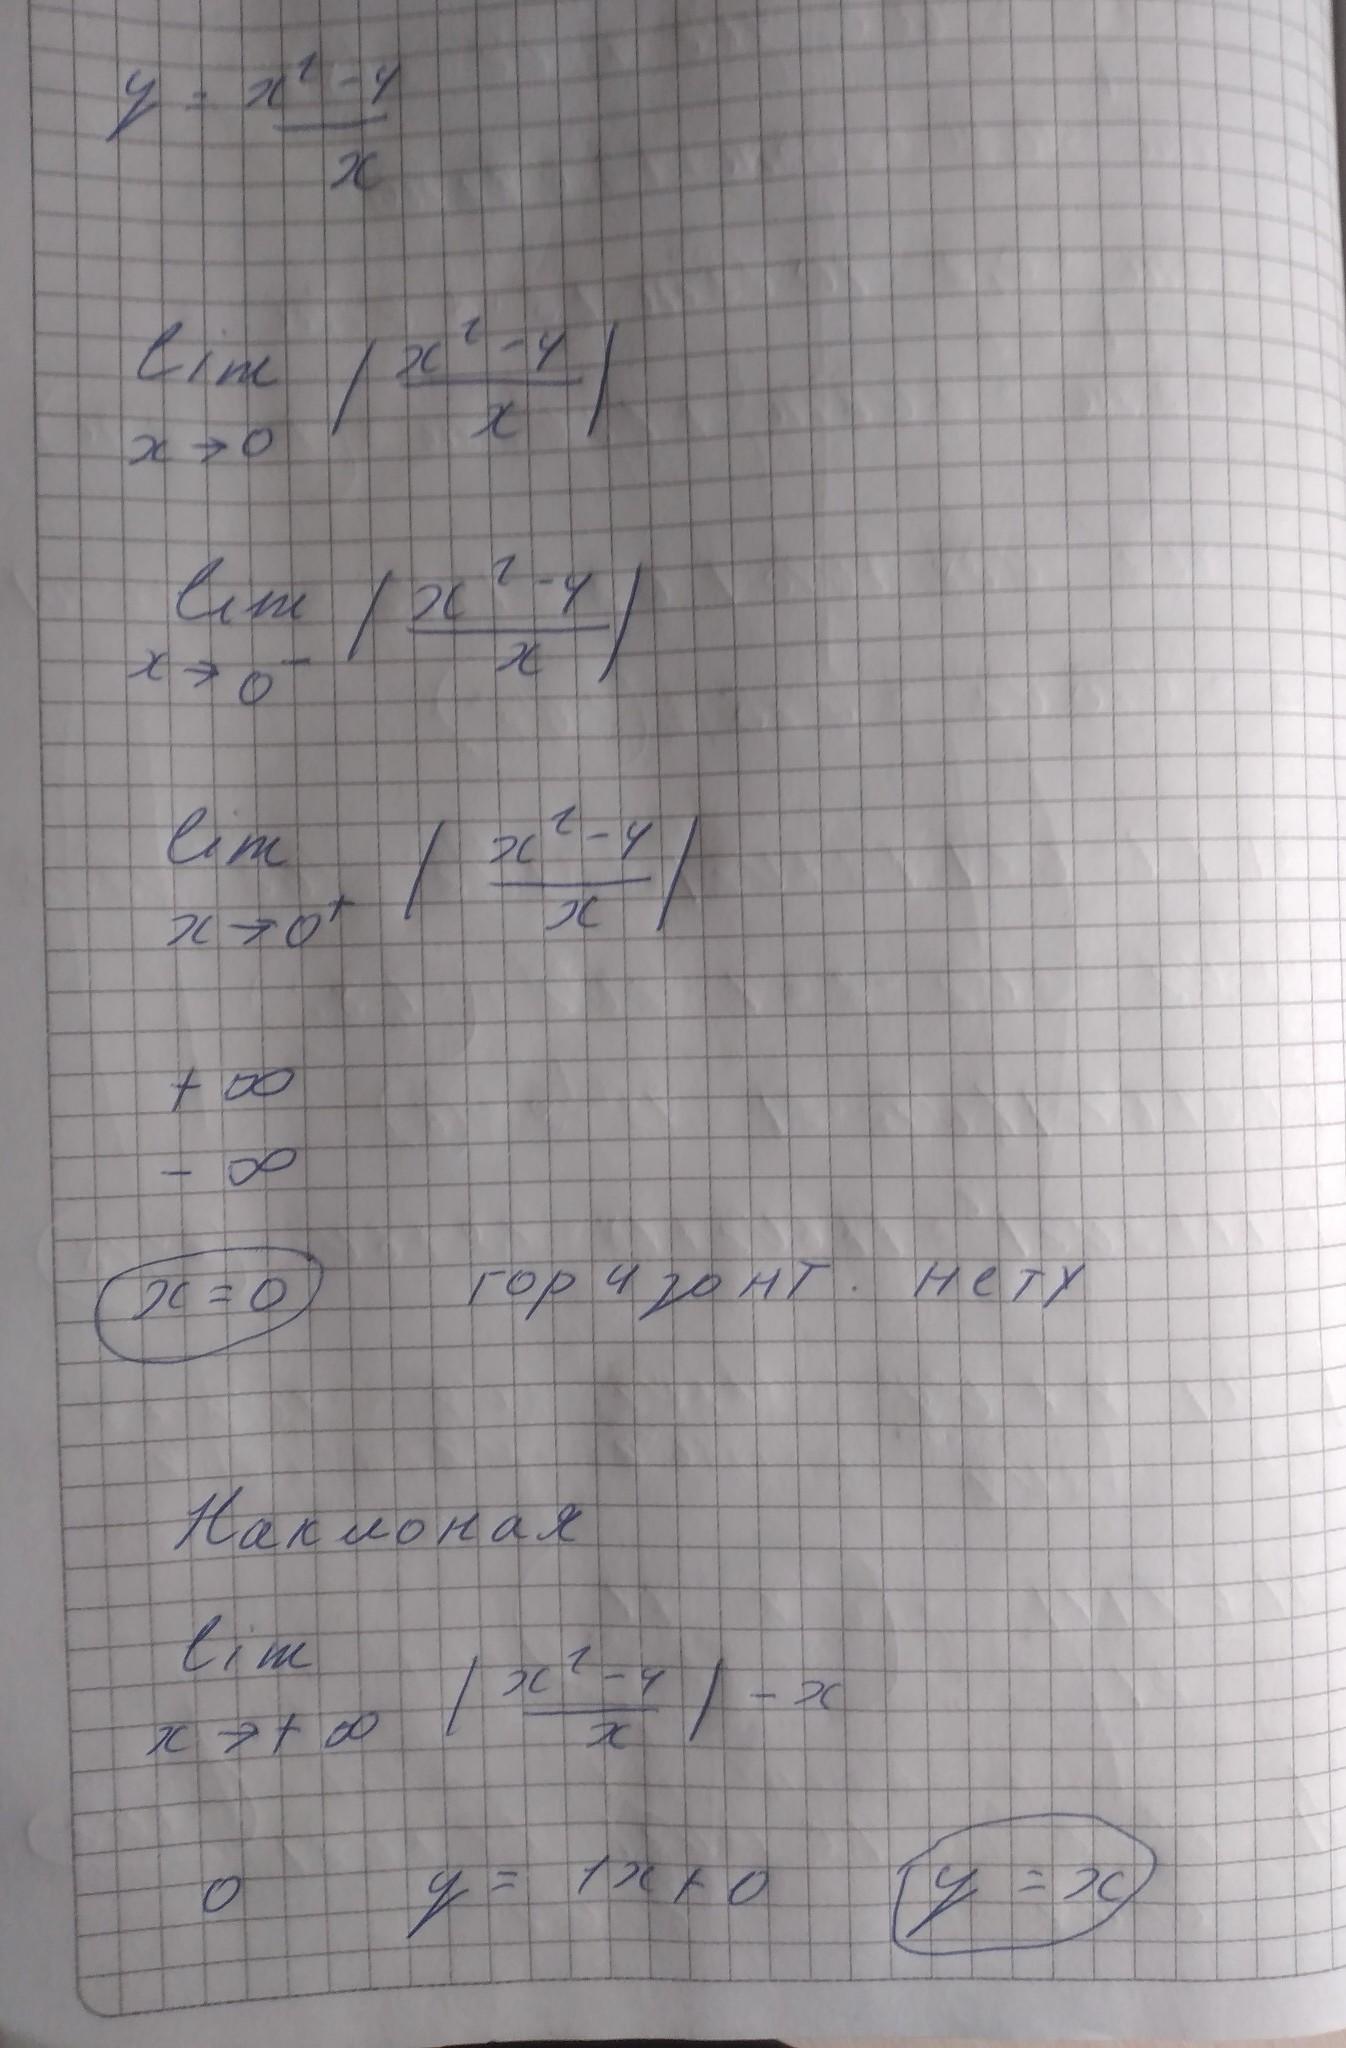 y = x² - 4
x
lim | x² - 4 |
x → 0 x
lim | x² - 4 |
x → 0⁻ x
lim | x² - 4 |
x → 0⁺ x
+ ∞
- ∞
x = 0 горизонт. нету
Наклоная
lim | x² - 4 | - x
x → + ∞ x
0 y = 1x + 0 y = x